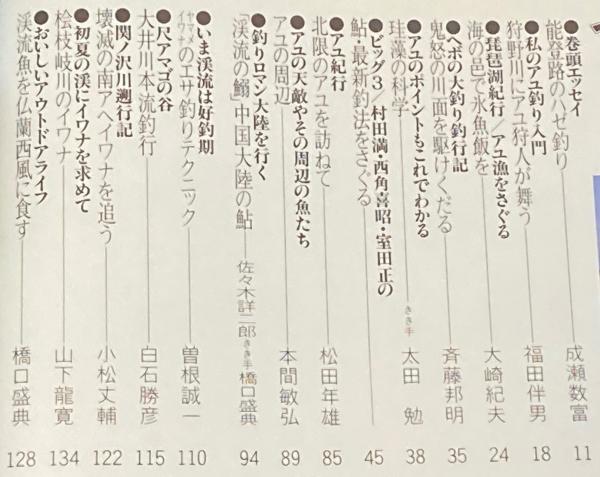 ●巻頭エッセイ
能登路のハゼ釣り 成瀬数富 11
●私のアユ釣り入門
狩野川にアユ狩人が舞う 福田伴男 18
●琵琶湖紀行/アユ漁をさぐる
海の邑で氷魚飯を 大崎紀夫 24
●ヘボの大釣り釣行記
鬼怒の川面を駆けくだる 斉藤邦明 35
●アユのポイントもこれでわかる
珪藻の科学 きき手 太田勉 38
●ビッグ3/村田満・西角喜昭・室田正の
鮎・最新釣法をさぐる 45
●アユ紀行
北限のアユを訪ねて 松田年雄 85
●アユの天敵やその周辺の魚たち
アユの周辺 本間敏弘 89
●釣りロマン大陸を行く
「渓流の鰯」中国大陸の鮎 佐々木詳二郎 きき手 橋口盛典 94
●いま渓流は好釣期
ヤマメ イワナのエサ釣りテクニック 曽根誠一 110
●尺アマゴの谷
大井川本流釣行 白石勝彦 115
●関ノ沢川遡行記
壊滅の南アへイワナを追う 小松丈輔 122
●初夏の渓にイワナを求めて
桧枝岐川のイワナ 山下龍寛 134
●おいしいアウトドアライフ
渓流魚を仏蘭西風に食す 橋口盛典 128